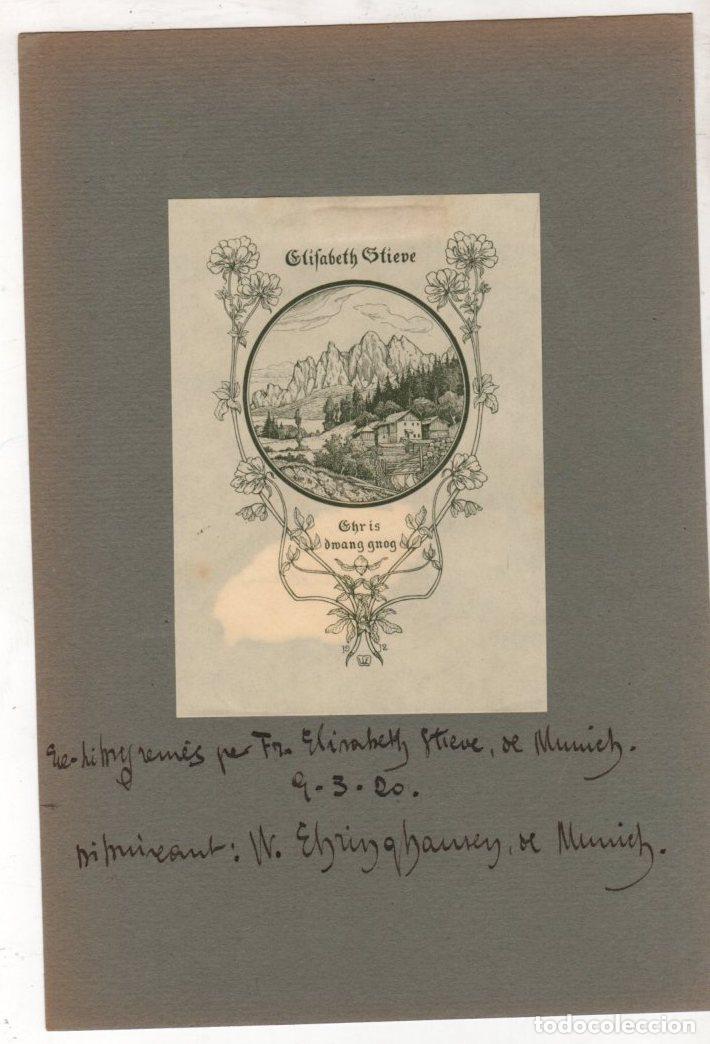 Elisabeth Stieve
Ehr is
dwang gnog
19 12
per Fr. Elisabeth Stieve, de Munich.
9-3-20.
W. Ehringhausen, de Munich.
todocoleccion